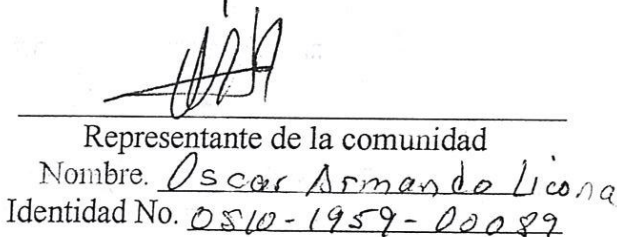 Representante de la comunidad
Nombre. Oscar Armando Licona
Identidad No. 0510-1959-00089